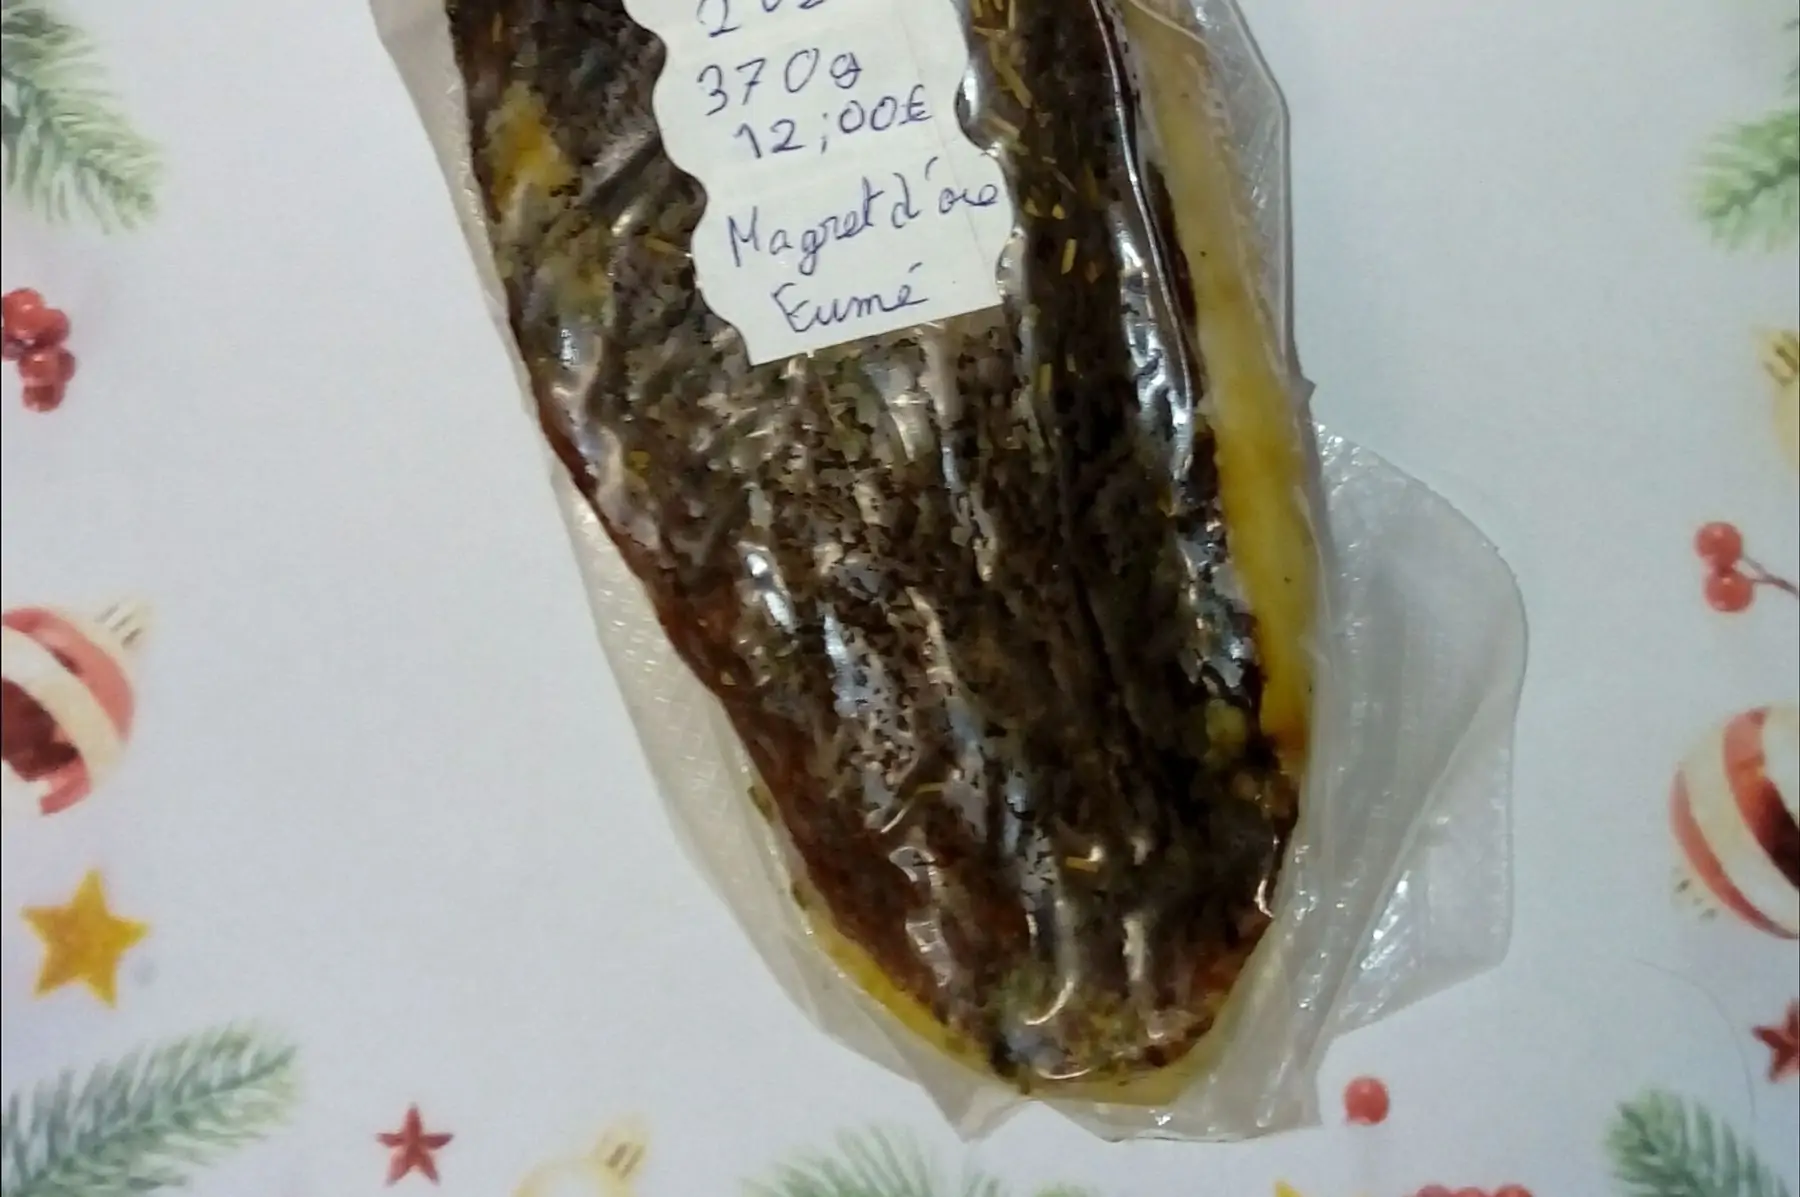 370g
12,00€
Magret d'oie
Fumé